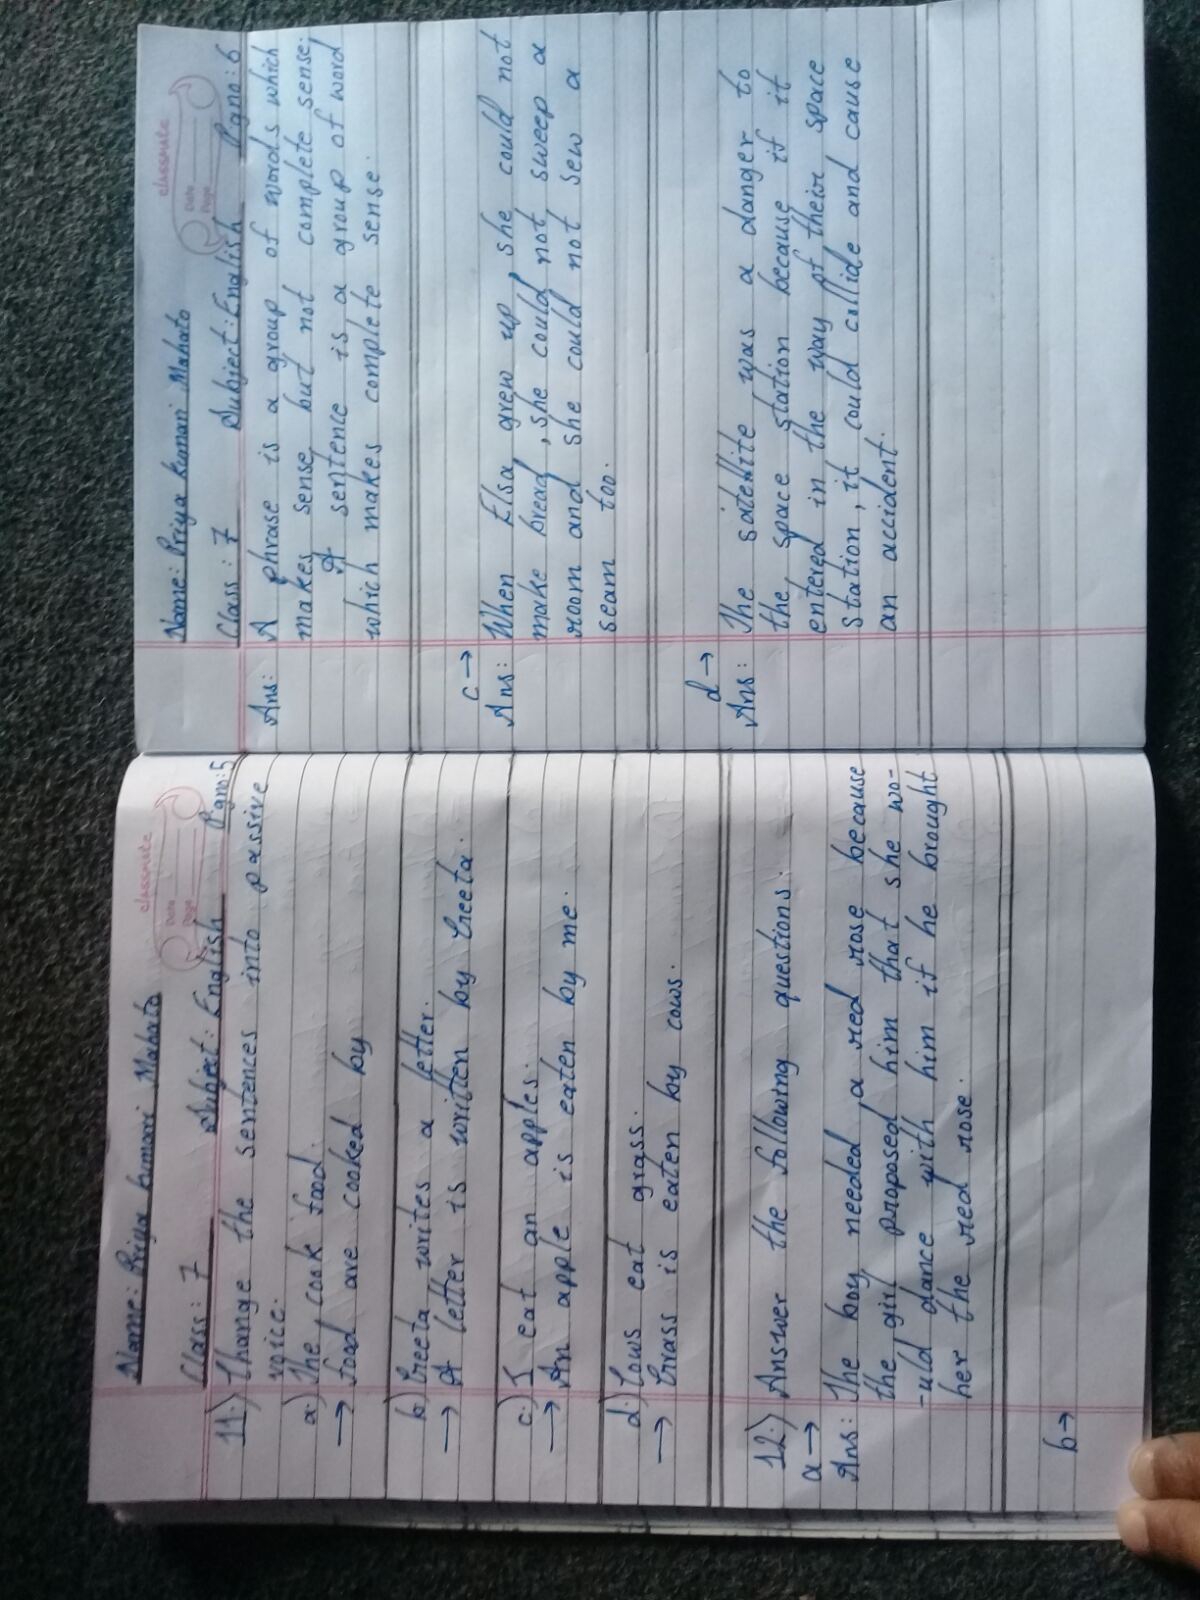 Name: Priya kumari Mahato
classmate
Date
Page
Class: 7 Subject: English Pgno: 5
11.) Change the sentences into passive
voice.
a) The cook food.
→ food are cooked by
b) Geeta writes a letter.
→ A letter is written by Geeta.
c.) I eat an apples.
→ An apple is eaten by me.
d.) Cows eat grass.
→ Grass is eaten by cows.
12.) Answer the following questions.
a →
Ans: The boy needed a red rose because
the girl proposed him that she wo-
-uld dance with him if he brought
her the red rose.
b →
Name: Priya kumari Mahato
classmate
Date
Page
Class: 7 Subject: English Pgno: 6
Ans: A phrase is a group of words which
makes sense but not complete sense.
A sentence is a group of word
which makes complete sense.
c →
Ans: When Elsa grew up, she could not
make bread, she could not sweep a
room and she could not sew a
seam too.
d →
Ans: The satellite was a danger to
the space station because if it
entered in the way of their space
station, it could collide and cause
an accident.